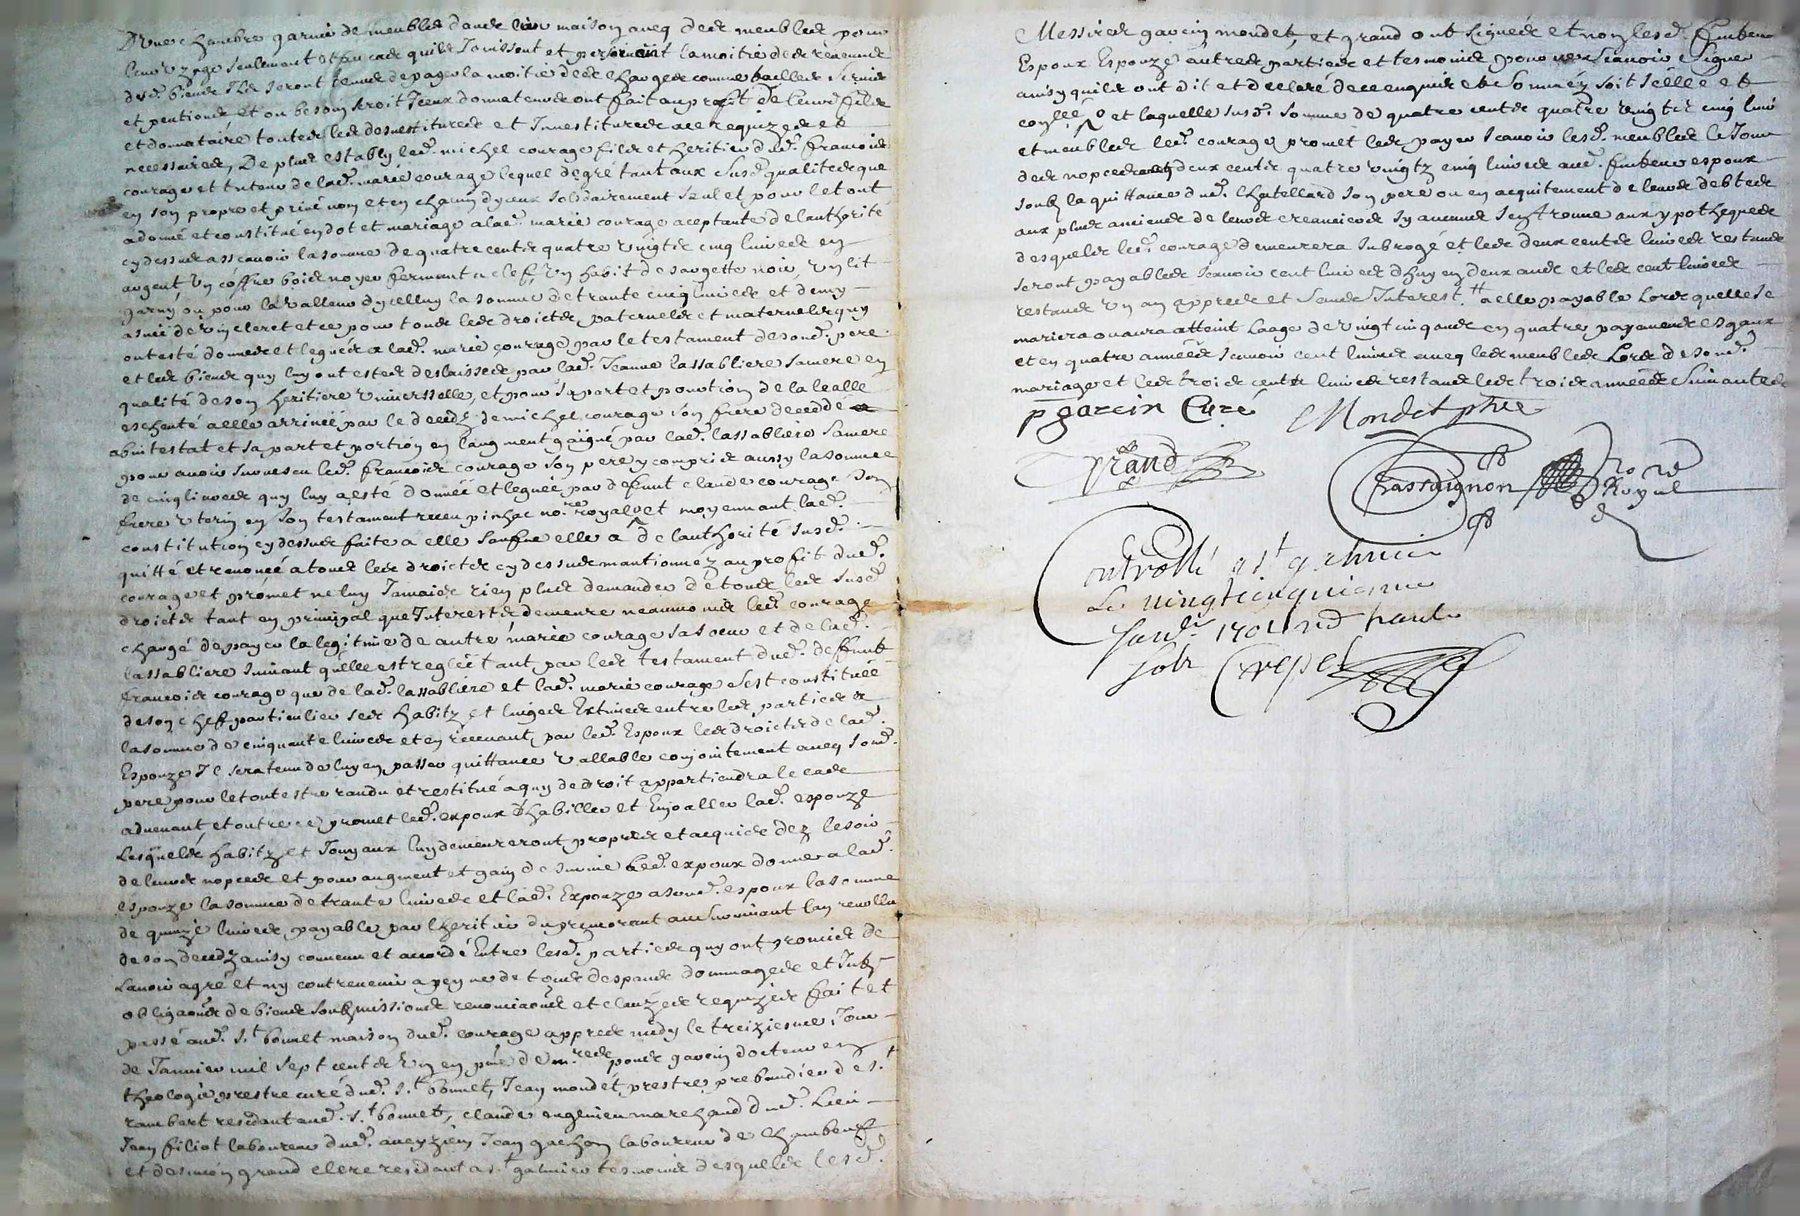 D'une chambre garnie de meubles dans leur maison aveq des meubles pour
leur uzage seulement et en cas quils Jouissent et persoivent la moitié des revenus
dusd. biens Ils seront tenus de payer la moitié des charges comme tailles
et pentions et ou besoin seroit Iceux donnateurs ont fait au profit de leurd. fils
et donnataire toutes les desvestitures et Investitures a ce requizes et
necessaires, De plus estably led. michel courage fils et heritier dud. francois
courage et tuteur de lad. marie courage lequel de gré tant aux susd. qualites que
en son propre et privé nom et en chacun d'yceux solidairement seul et pour le tout
a donné et constitué en dot et mariage a lad. marie courage aceptante de l'authorité
cy dessus asscavoir la somme de quatre cents quatre vingts cinq livres en
argent, un coffre bois noyer fermant a clef, un habit de sargette noir, un lit
garny ou pour la valleur dycelluy la somme de trante cinq livres et demy
asnée de vin cleret et ce pour tous les droicts paternels et maternels quy
ont esté donnes et legués a lad. marie courage par le testament de sond. pere
et les biens quy luy ont estes deslaissés par lad. Jeanne lassabliere sa mere en
qualité de son heritiere universselle, et pour sa part et portion de la
escheute a elle arrivée par le decedz de michel courage son frere decedé
abintestat et sa part et portion en l'augment gaigné par lad. lassabliere sa mere
pour avoir survescu led. francois courage son pere y compris aussy la somme
de cinq livres quy luy a esté donnée et leguée par defunt claude courage son
frere uterin en son testament receu pinhac no.re royal et moyennant lad.
constitution cy dessus faite a elle sauf que elle a de l'authorité susd.
quitté et renoncé a tous les droicts cy dessus mantionnez au profit dud.
courage et promet ne luy Jamais rien plus demander de tous les susd.
droicts tant en principal que Interests demeure neanmoins led. courage
chargé de payer la legitime de autre marie courage sa soeur et de lad.
lassabliere suivant qu'elle est reglée tant par les testament dud. deffunt
francois courage que de lad. lassabliere et lad. marie courage s'est constituée
de son chef particulier ses habitz et linges Extimes entre les parties a
la somme de cinquante livres et en recevant par led. Espoux les droicts de lad.
Espouze Il sera tenu de luy en passer quittance vallable conjointement aveq sond.
pere pour le tout estre randu et restitué a quy de droit appartiendra le cas
advenant et outre ce promet led. expoux d'habiller et Enjoaller lad. espouze
Lesquels habitz et Jouyaux luy demeureront propres et acquis dez le soir
de leurs nopces et pour augment et gain de survie led. expoux donne a lad.
espouze la somme de trante livres et lad. Expouze a sond. espoux la somme
de quinze livres payable par l'heritier du premorant au survivant l'an revollu
de son decedz ainsy convenu et accordé Entre lesd. parties quy ont promis de
l'avoir a gré et ny contrevenir a peyne de tous despans dommages et
obligaõns de biens soubzmissions renonciaõns et clauzes requizes fait et
passé aud. S.t bonnet maison dud. courage appres midy le treiziesme Jour
de Janvier mil sept cents un en pñce de m.res pons gazein docteur en
theologie prestre curé dud. S.t bonnet, Jean mondet prestre prebandier de S.t
rambert residant aud. S.t bonnet, claude engenieu marchand dud. lieu
Jean filiot laboureur dud. Jean gachon laboureur de chambeuf
et desimon grand clerc residant a S.t galmier tesmoins desquels lesd.
Messires gazein mondet, et grand ont signés et non lesd.
Espoux Espouze autres parties et tesmoins pour ne scavoir signer
ainsy quils ont dit et declaré de ce enquis et sommés soit scellé et
et laquelle susd. somme de quatre cents quatre vingts cinq livres
et meubles led. courage promet les payer scavoir lesd. meubles le Jour
des nopces deux cents quatre vingtz cinq livres aud. espoux
soubz la quittance dud. chatellard son pere ou en acquitement de leurs debtes
aux plus anciens de leurs creanciers
desquels led. courage demeurera subrogé et les deux cents livres restans
seront payables scavoir cent livres d'huy en deux ans et les cent livres
restans un an appres et sans Interest. # a elle payable lors quelle se
mariera ou aura atteint l'aage de vingt cinq ans en quatre payemens esgaux
et en quatre années scavoir cent livres aveq les meubles lors de sond.
mariage et les trois cents livres restans les trois années suivantes
p gazein Curé Mondet ptre
Grand
Chassaignon no.re Royal
Controllé a S.t galmier
Le vingtcinquiesme
Janv.r 1701
Crepet